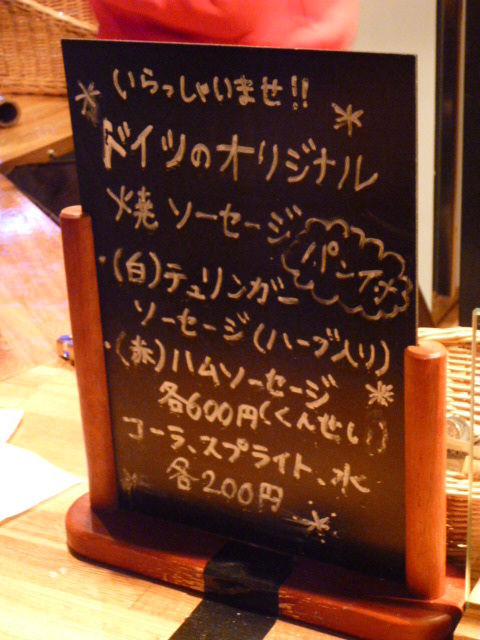 いらっしゃいませ!!
ドイツのオリジナル
焼ソーセージ
パンイン
・(白)テュリンガー
ソーセージ(ハーブ入り)
・(赤)ハムソーセージ
各600円(くんせい)
コーラ、スプライト、水
各200円